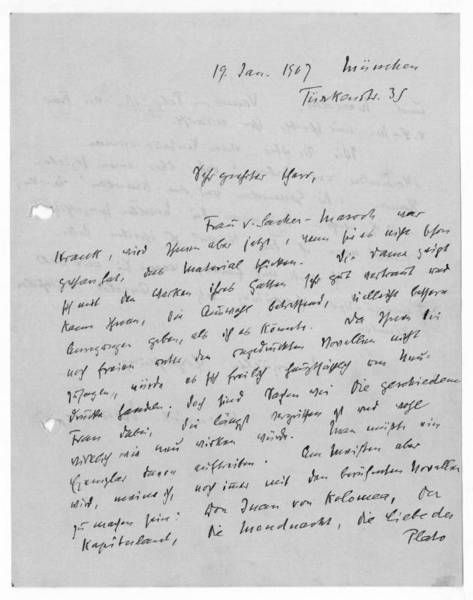 19. Jan. 1907 München
Türkenstr. 35
Sehr geehrter Herr,
Frau v. Sacher-Masoch war
krank, wird Ihnen aber jetzt, wenn sie es nicht schon
gethan hat, das Material schicken. Die Dame zeigt
sich mit den Werken ihres Gatten sehr gut vertraut und
kann Ihnen, die Auswahl betreffend, vielleicht bessere
Anregungen geben, als ich es könnte. Da Ihnen die
noch freien unter den ungedruckten Novellen nicht
zusagen, würde es sich freilich hauptsächlich um Neu-
drucke handeln; doch sind Sachen wie Die geschiedene
Frau dabei, die längst vergriffen ist und wohl
wirklich wie neu wirken würde. Man müsste ein
Exemplar davon auftreiben. Am meisten aber
wird, meine ich, noch immer mit den berühmten Novellen
zu machen sein: Don Juan von Kolomea, Der
Kapitulant, Die Mondnacht, Die Liebe des
Plato